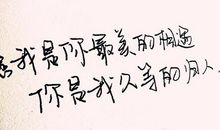 愿我是你最美的相遇
你是我久等的归人.